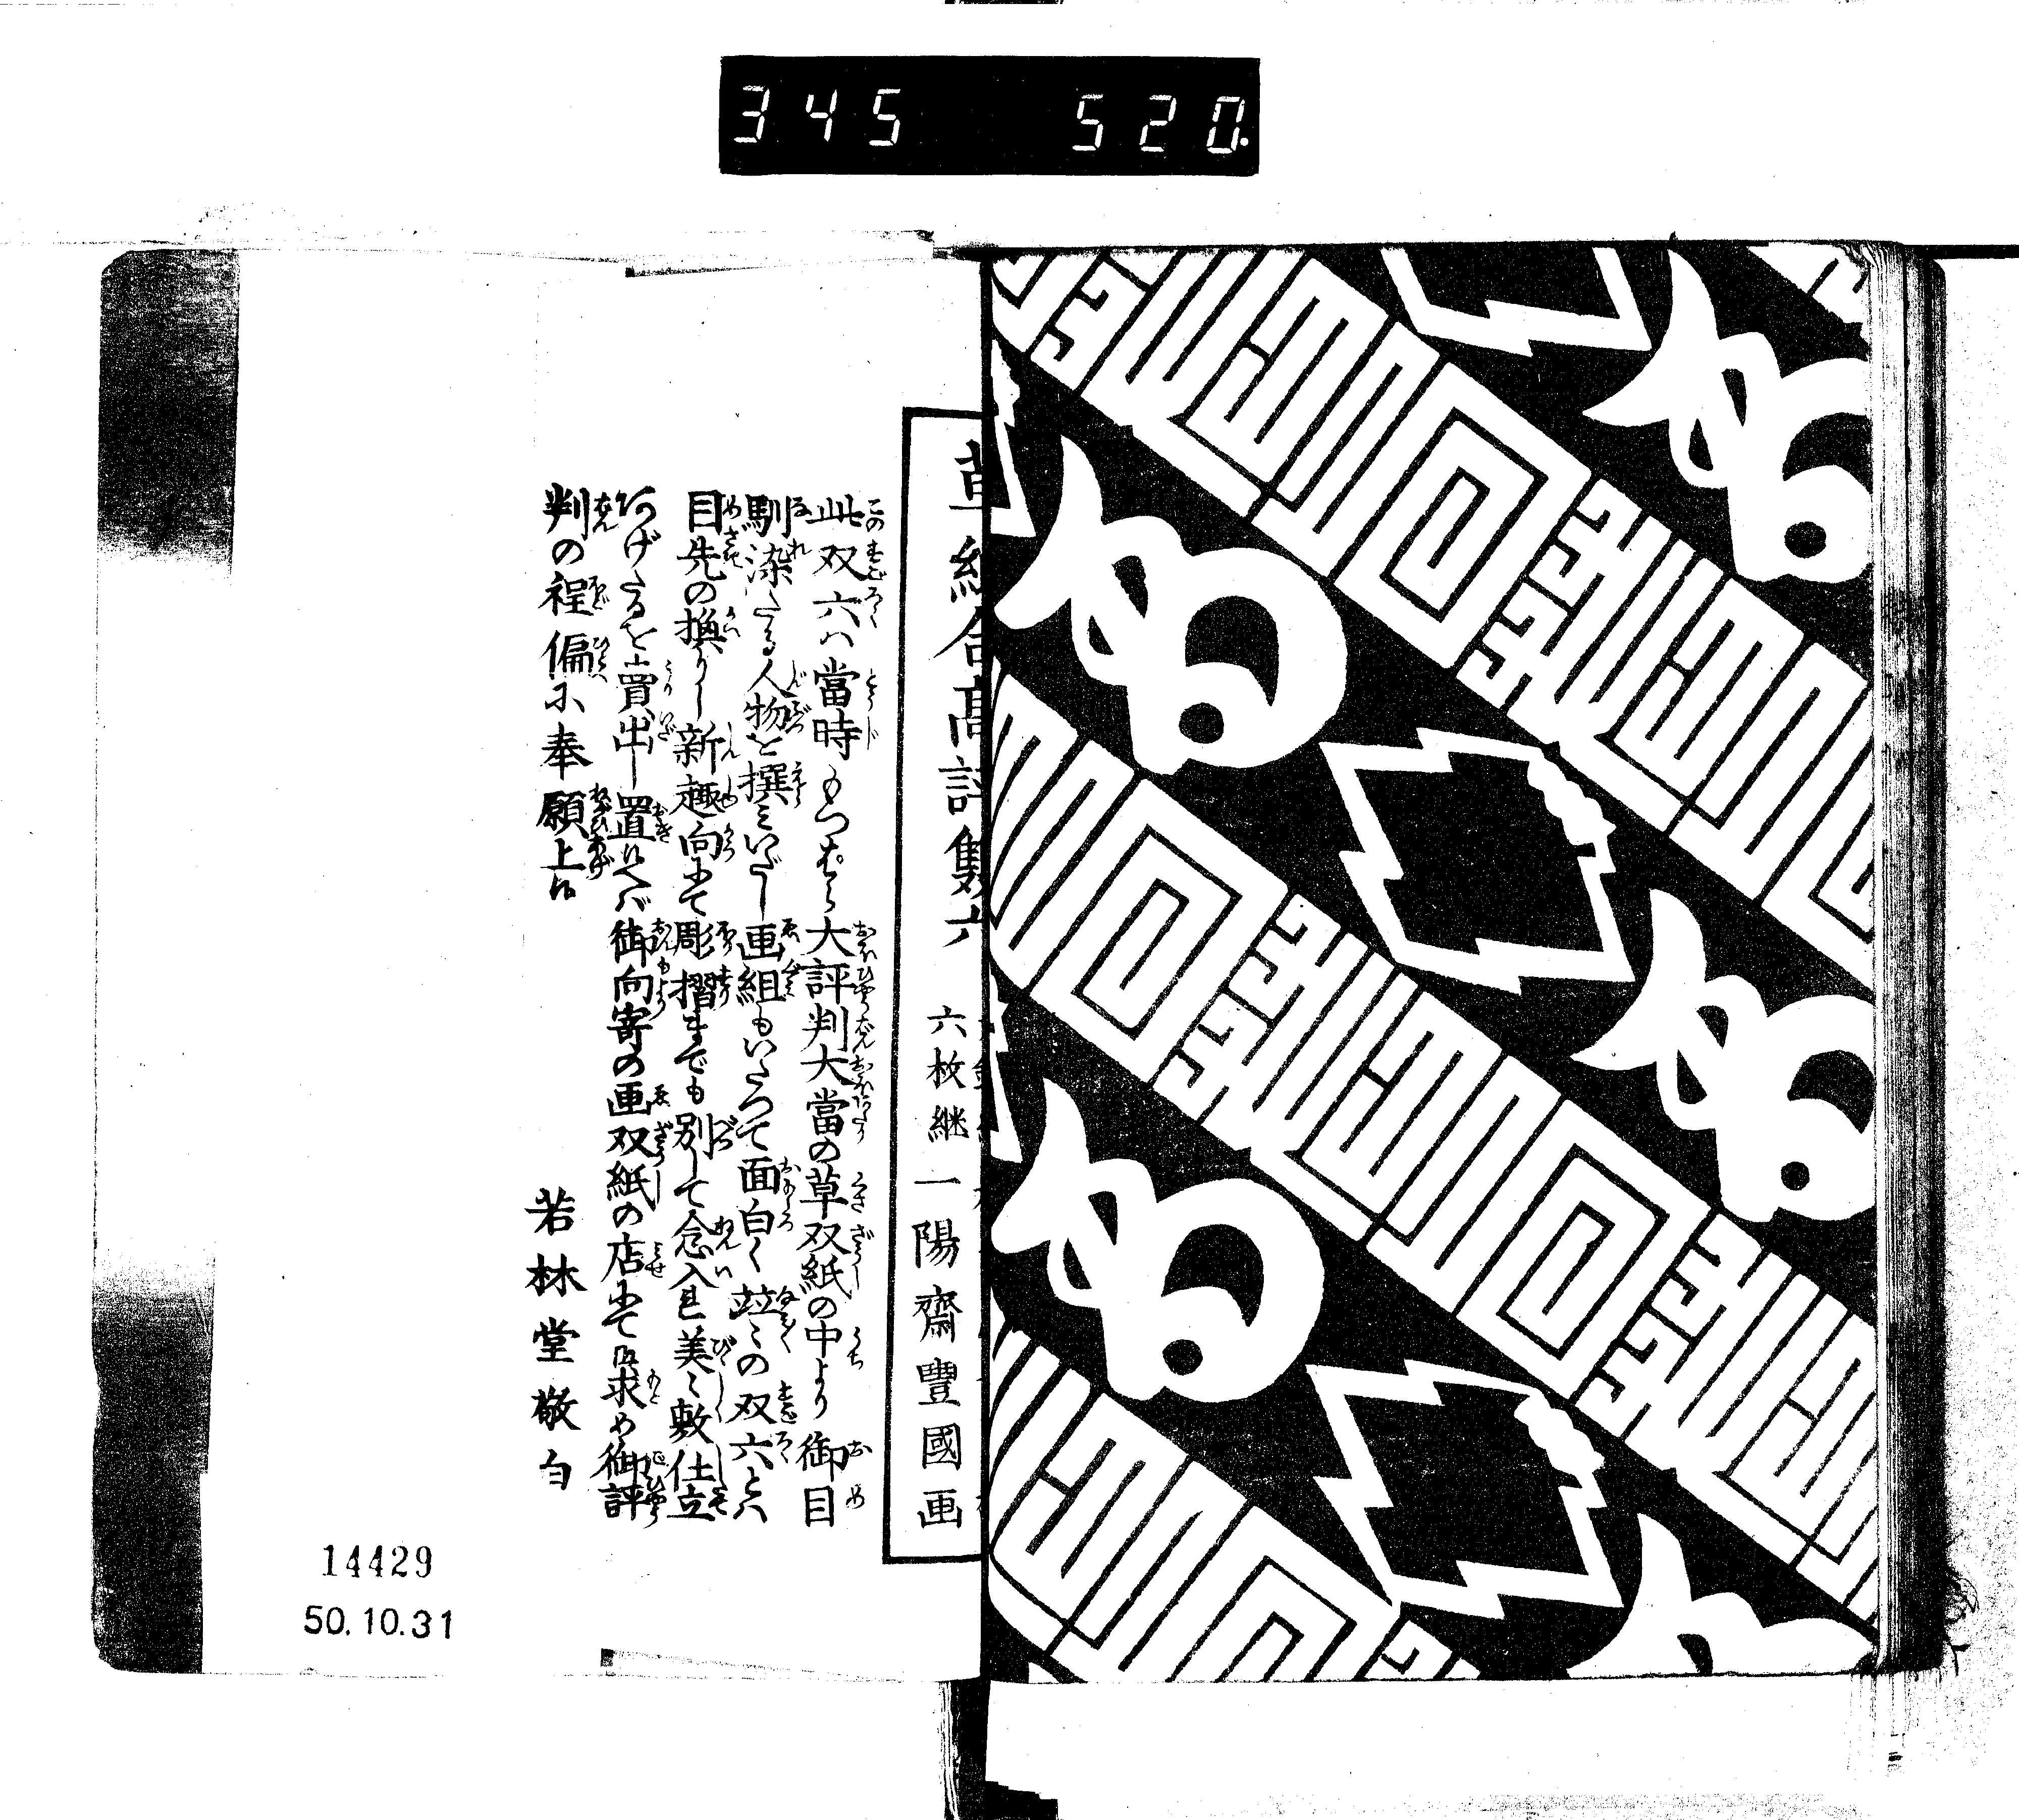 345 520.
草紙合高評雙六
六枚継 一陽齋豐國画
此双六ハ當時もつはら大評判大當の草双紙の中より御目
馴染たる人物を撰ミいだし画組もいたつて面白く並々の双六とハ
目先の換りし新趣向にて彫摺までも別して念入美々敷仕立
あげたるを賣出し置候へバ御向寄の画双紙の店にて御求め御評
判の程偏ニ奉願上候
若林堂敬白
14429
50.10.31